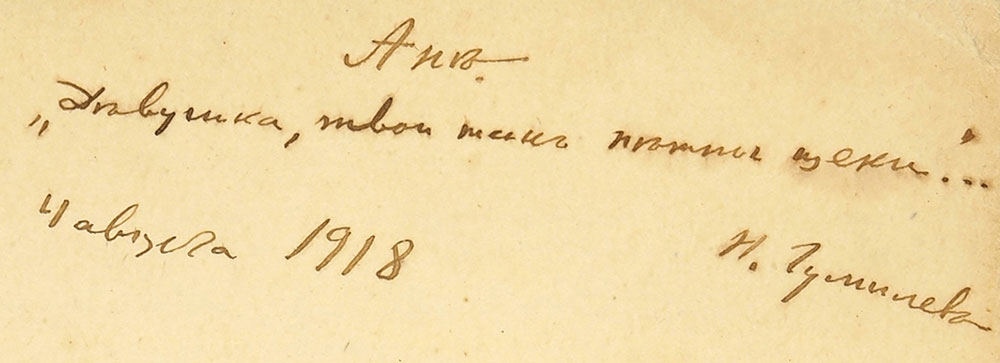 Анѣ.
„Дѣвушка, твои такъ нѣжны щеки!..
4 августа 1918
Н. Гумилевъ